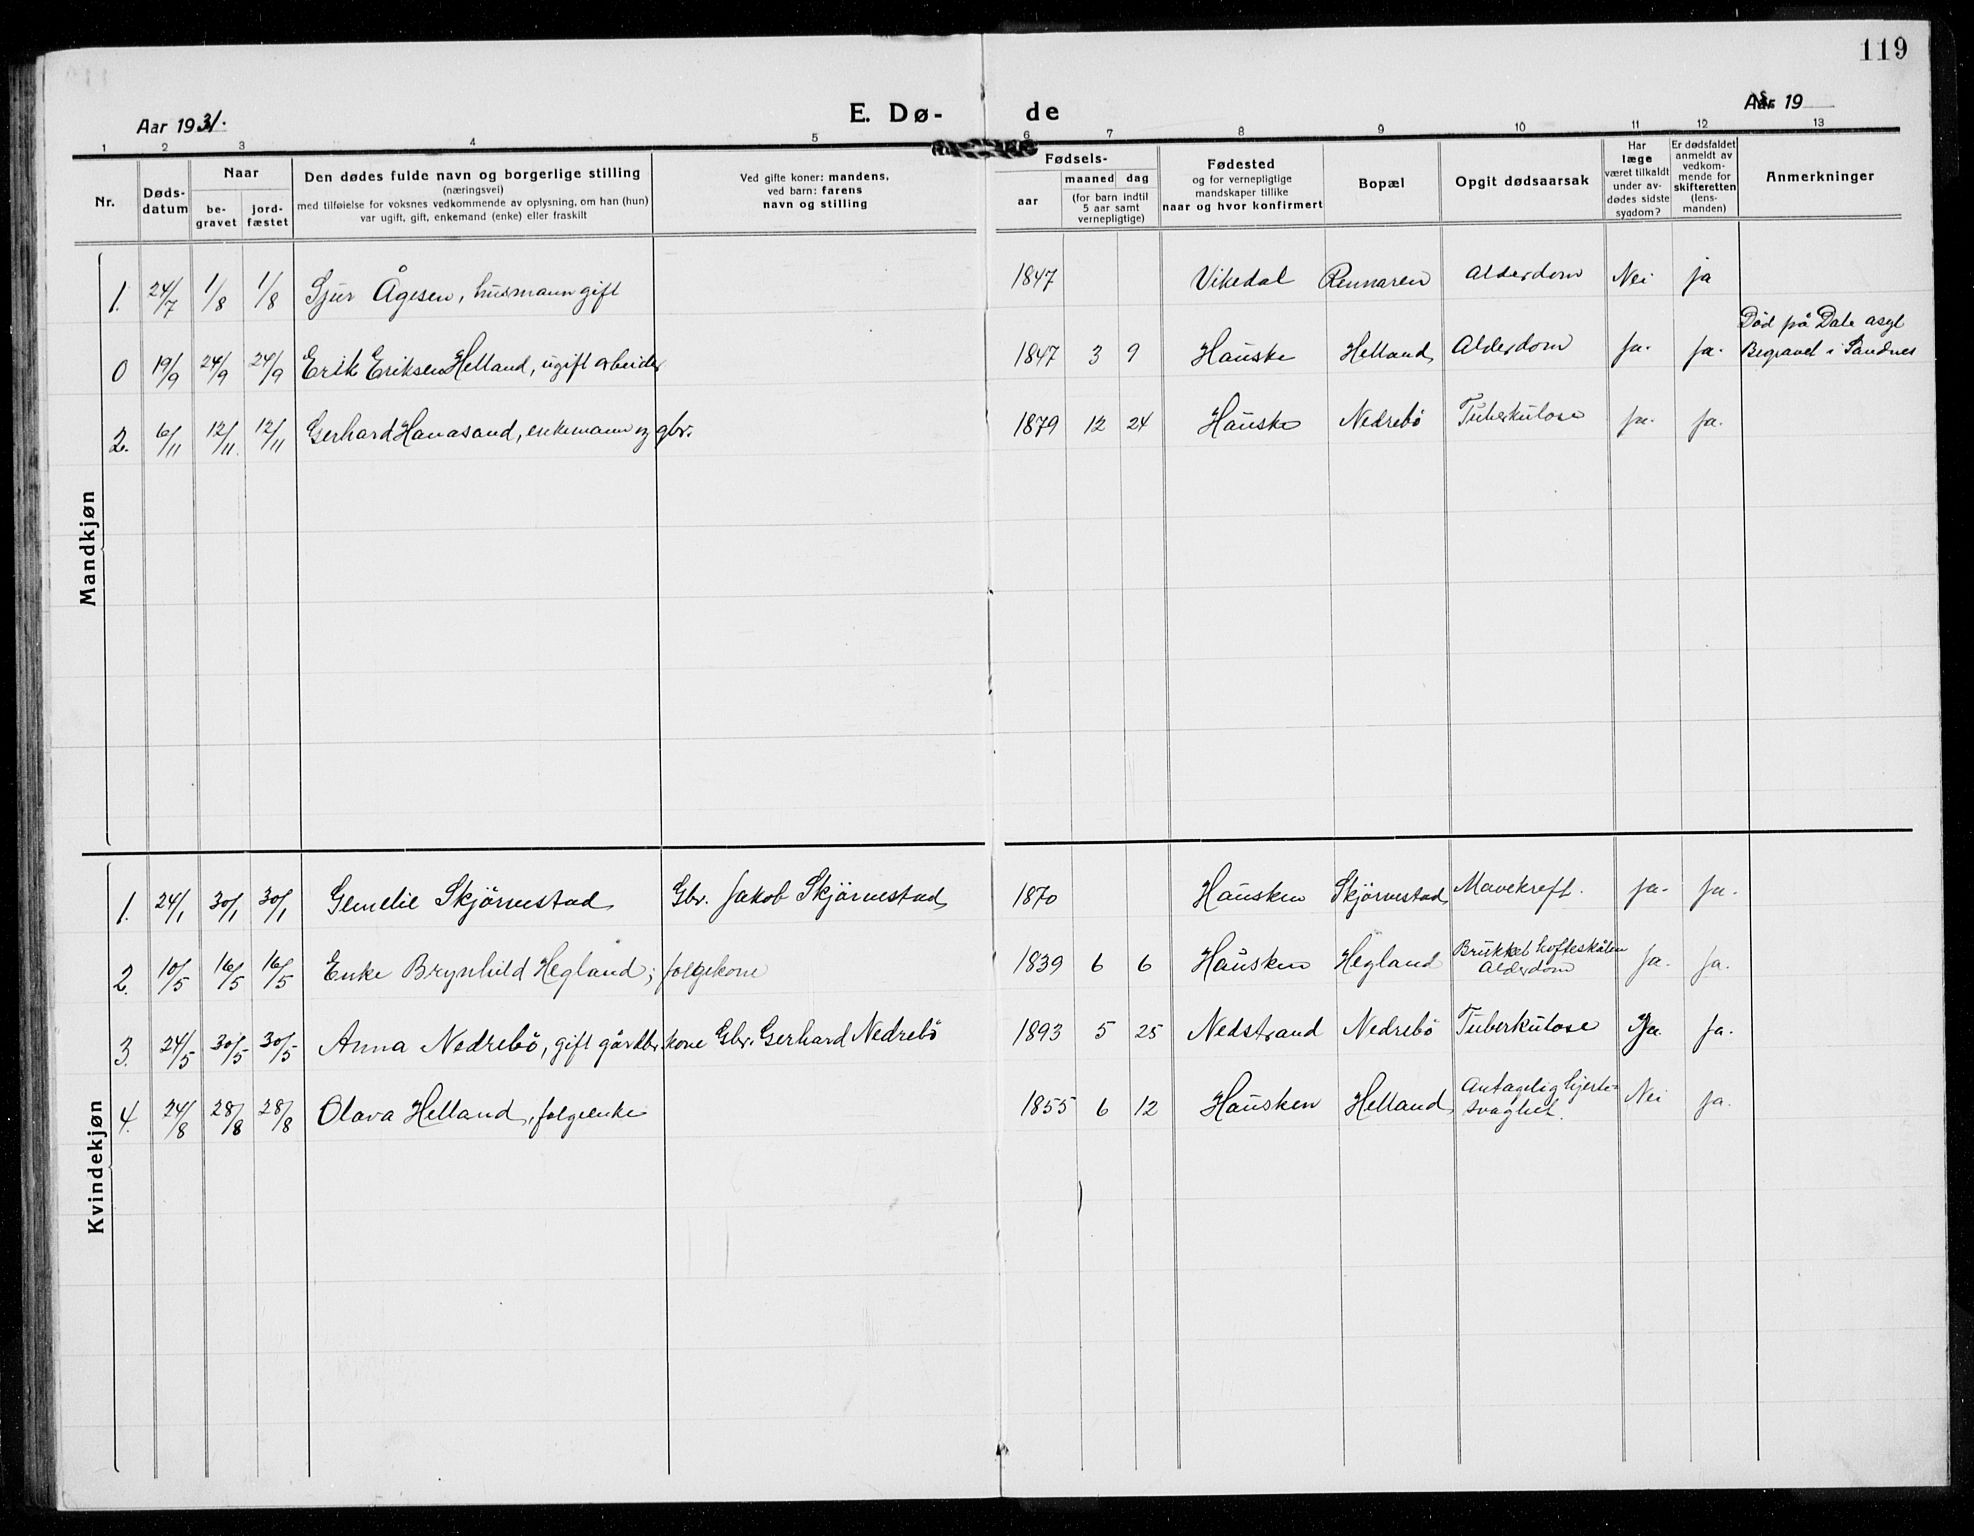 119
Aar 1931.
E. Dø-
de
Aar 19
1 2 3 4 5 6 7 8 9 10 11 12 13
Nr.
Døds-
datum
Naar
be-
gravet
jord-
fæstet
Den dødes fulde navn og borgerlige stilling
(næringsvei)
med tilføielse for voksnes vedkommende av oplysning, om han (hun)
var ugift, gift, enkemand (enke) eller fraskilt
Ved gifte koner: mandens,
ved barn: farens
navn og stilling
Fødsels-
aar
maaned dag
(for barn indtil
5 aar samt
vernepligtige)
Fødested
og for vernepligtige
mandskaper tillike
naar og hvor konfirmert
Bopæl
Opgit dødsaarsak
Har
læge
været tilkaldt
under av-
dødes sidste
sygdom?
Er dødsfaldet
anmeldt av
vedkom-
mende for
skifteretten
(lens-
manden)
Anmerkninger
Mandkjøn
1. 24/7 1/8 1/8 Sjur Ågesen, husmann gift 1847 Vikedal Rennaren Alderdom Nei ja
0 19/9 24/9 24/9 Erik Eriksen Helland, ugift arbeider 1847 3 9 Hauske Helland Alderdom ja. ja. Død på Dale asyl
Begravet i Sandnes
2. 6/11 12/11 12/11 Gerhard Hanasand, enkemann og gbr. 1879 12 24 Hauske Nedrebø Tuberkulose ja. ja.
Kvindekjøn
1. 24/1 30/1 30/1 Skjørvestad Gbr. Jakob Skjørvestad 1870 Hausken Skjørvestad Mavekreft. ja. ja.
2. 10/5 16/5 16/5 Enke Brynhild Hegland; folgekone 1839 6 6 Hausken Hegland Brukket hofteskålen
Alderdom ja. ja.
3. 24/5 30/5 30/5 Anna Nedrebö, gift gårdbr. kone Gbr. Gerhard Nedrebö 1893 5 25 Nedstrand Nedrebö Tuberkulose Ja. ja.
4. 24/8 28/8 28/8 Olava Helland, folgeenke 1855 6 12 Hausken Helland Antagelig hjerte-
svaghet. Nei ja.